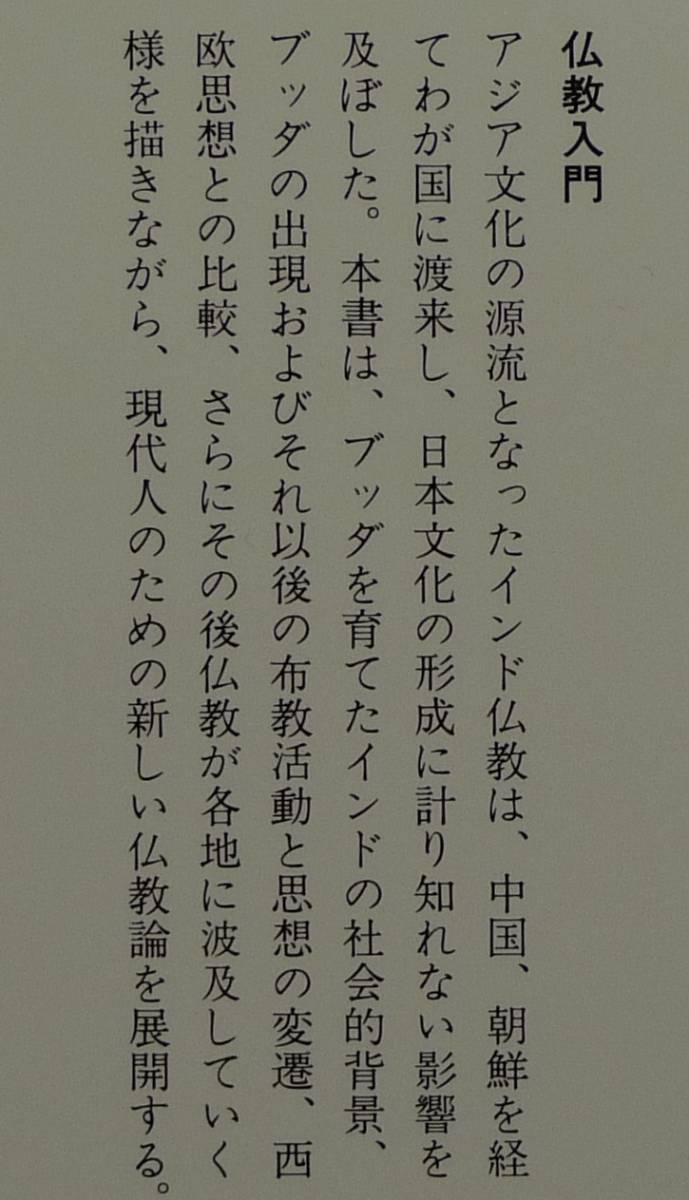 仏教入門
アジア文化の源流となったインド仏教は、中国、朝鮮を経
てわが国に渡来し、日本文化の形成に計り知れない影響を
及ぼした。本書は、ブッダを育てたインドの社会的背景、
ブッダの出現およびそれ以後の布教活動と思想の変遷、西
欧思想との比較、さらにその後仏教が各地に波及していく
様を描きながら、現代人のための新しい仏教論を展開する。